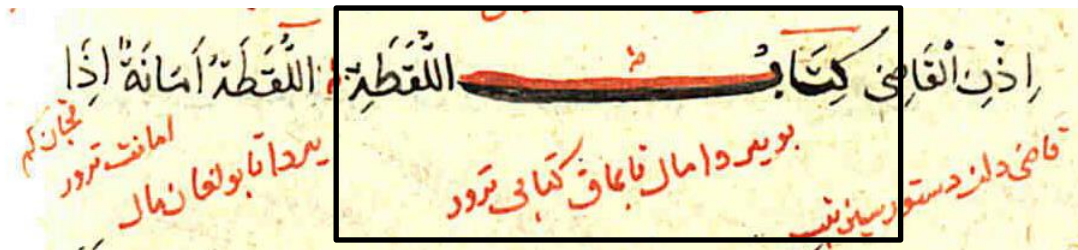 اِذْنِ الْقَاضِى كِتَابُ اللُّقَطَةِ اللُّقَطَةُ اَمَانَةٌ اِذَا
قاضى دستور سيز بو يردا مال تابماق كتابى ترور يردا تابولغان مال امانت ترور قچان كم